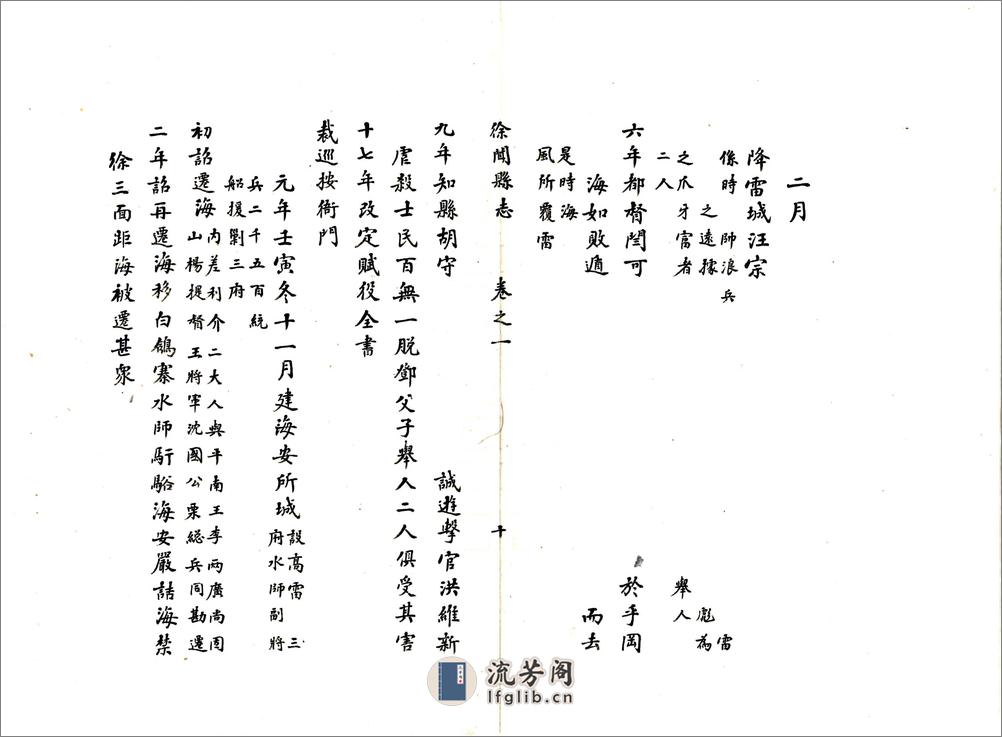 二月
降雷城汪宗
係時 師浪兵 雷
之遠據 彪為
之爪牙富者 舉人
二人
六年都督閆可 於手岡
海如敗遁 而去
是時海
風所覆雷
徐聞縣志 卷之一 十
九年知縣胡守 誠遊擊官洪維新
虐殺士民百無一脫鄧父子舉人二人俱受其害
十七年改定賦役全書
裁巡按衙門
元年壬寅冬十一月建海安所城
設高雷三
府水師副將
兵二千五百統
船援剿三府
初詔遷海
內差利介二大人與平南王李兩廣尚固
山楊提督王將軍沈國公栗總兵同勘遷
二年詔再遷海移白鴿寨水師 海安嚴詰海禁
徐三面距海被遷甚衆
流芳阁
lfglib.cn